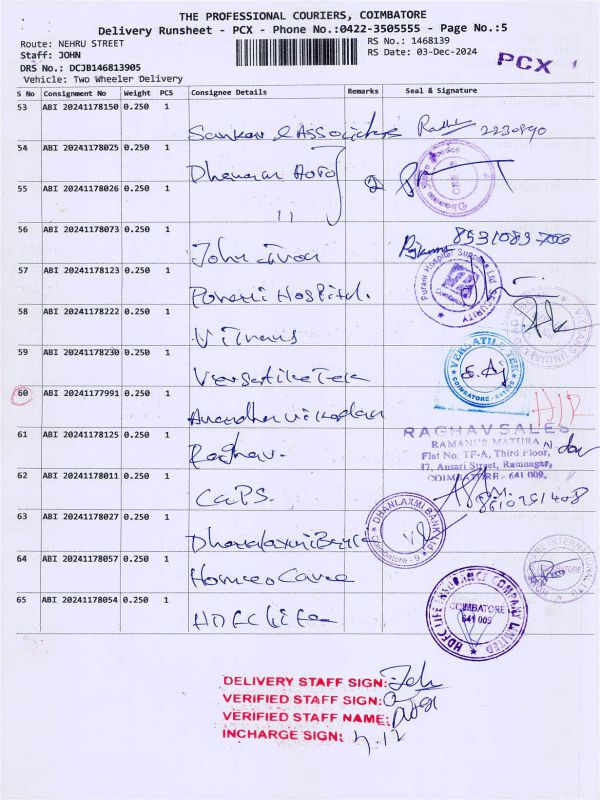 THE PROFESSIONAL COURIERS, COIMBATORE
Delivery Runsheet - PCX - Phone No.:0422-3505555 - Page No.:5
Route: NEHRU STREET
RS No.: 1468139
Staff: JOHN
RS Date: 03-Dec-2024
DRS No.: DCJB146813905
PCX
Vehicle: Two Wheeler Delivery
S No Consignment No Weight PCS Consignee Details Remarks Seal & Signature
53 ABI 20241178150 0.250 1
Sankar & Associates
54 ABI 20241178025 0.250 1
55 ABI 20241178026 0.250 1
56 ABI 20241178073 0.250 1
John
57 ABI 20241178123 0.250 1
Hospital.
PURANI HOSPITAL SUPPLIES SECURITY
58 ABI 20241178222 0.250 1
59 ABI 20241178230 0.250 1
Versatile Tek
VERSATILE TEK
COIMBATORE
60 ABI 20241177991 0.250 1
Anandha Vikadan
61 ABI 20241178125 0.250 1
Raghav.
RAGHAV SALES
RAMANI'S MATURA
Flat No. TF-A, Third Floor,
37, Ansari Street, Ramnagar,
COIMBATORE - 641 009.
62 ABI 20241178011 0.250 1
CaPS.
63 ABI 20241178027 0.250 1
DHANLAXMI BANK
Coimbatore - 9
64 ABI 20241178057 0.250 1
Homeo Care
65 ABI 20241178054 0.250 1
HDFC Life
HDFC LIFE INSURANCE COMPANY LIMITED
COIMBATORE
641 009
DELIVERY STAFF SIGN:
VERIFIED STAFF SIGN:
VERIFIED STAFF NAME:
INCHARGE SIGN: